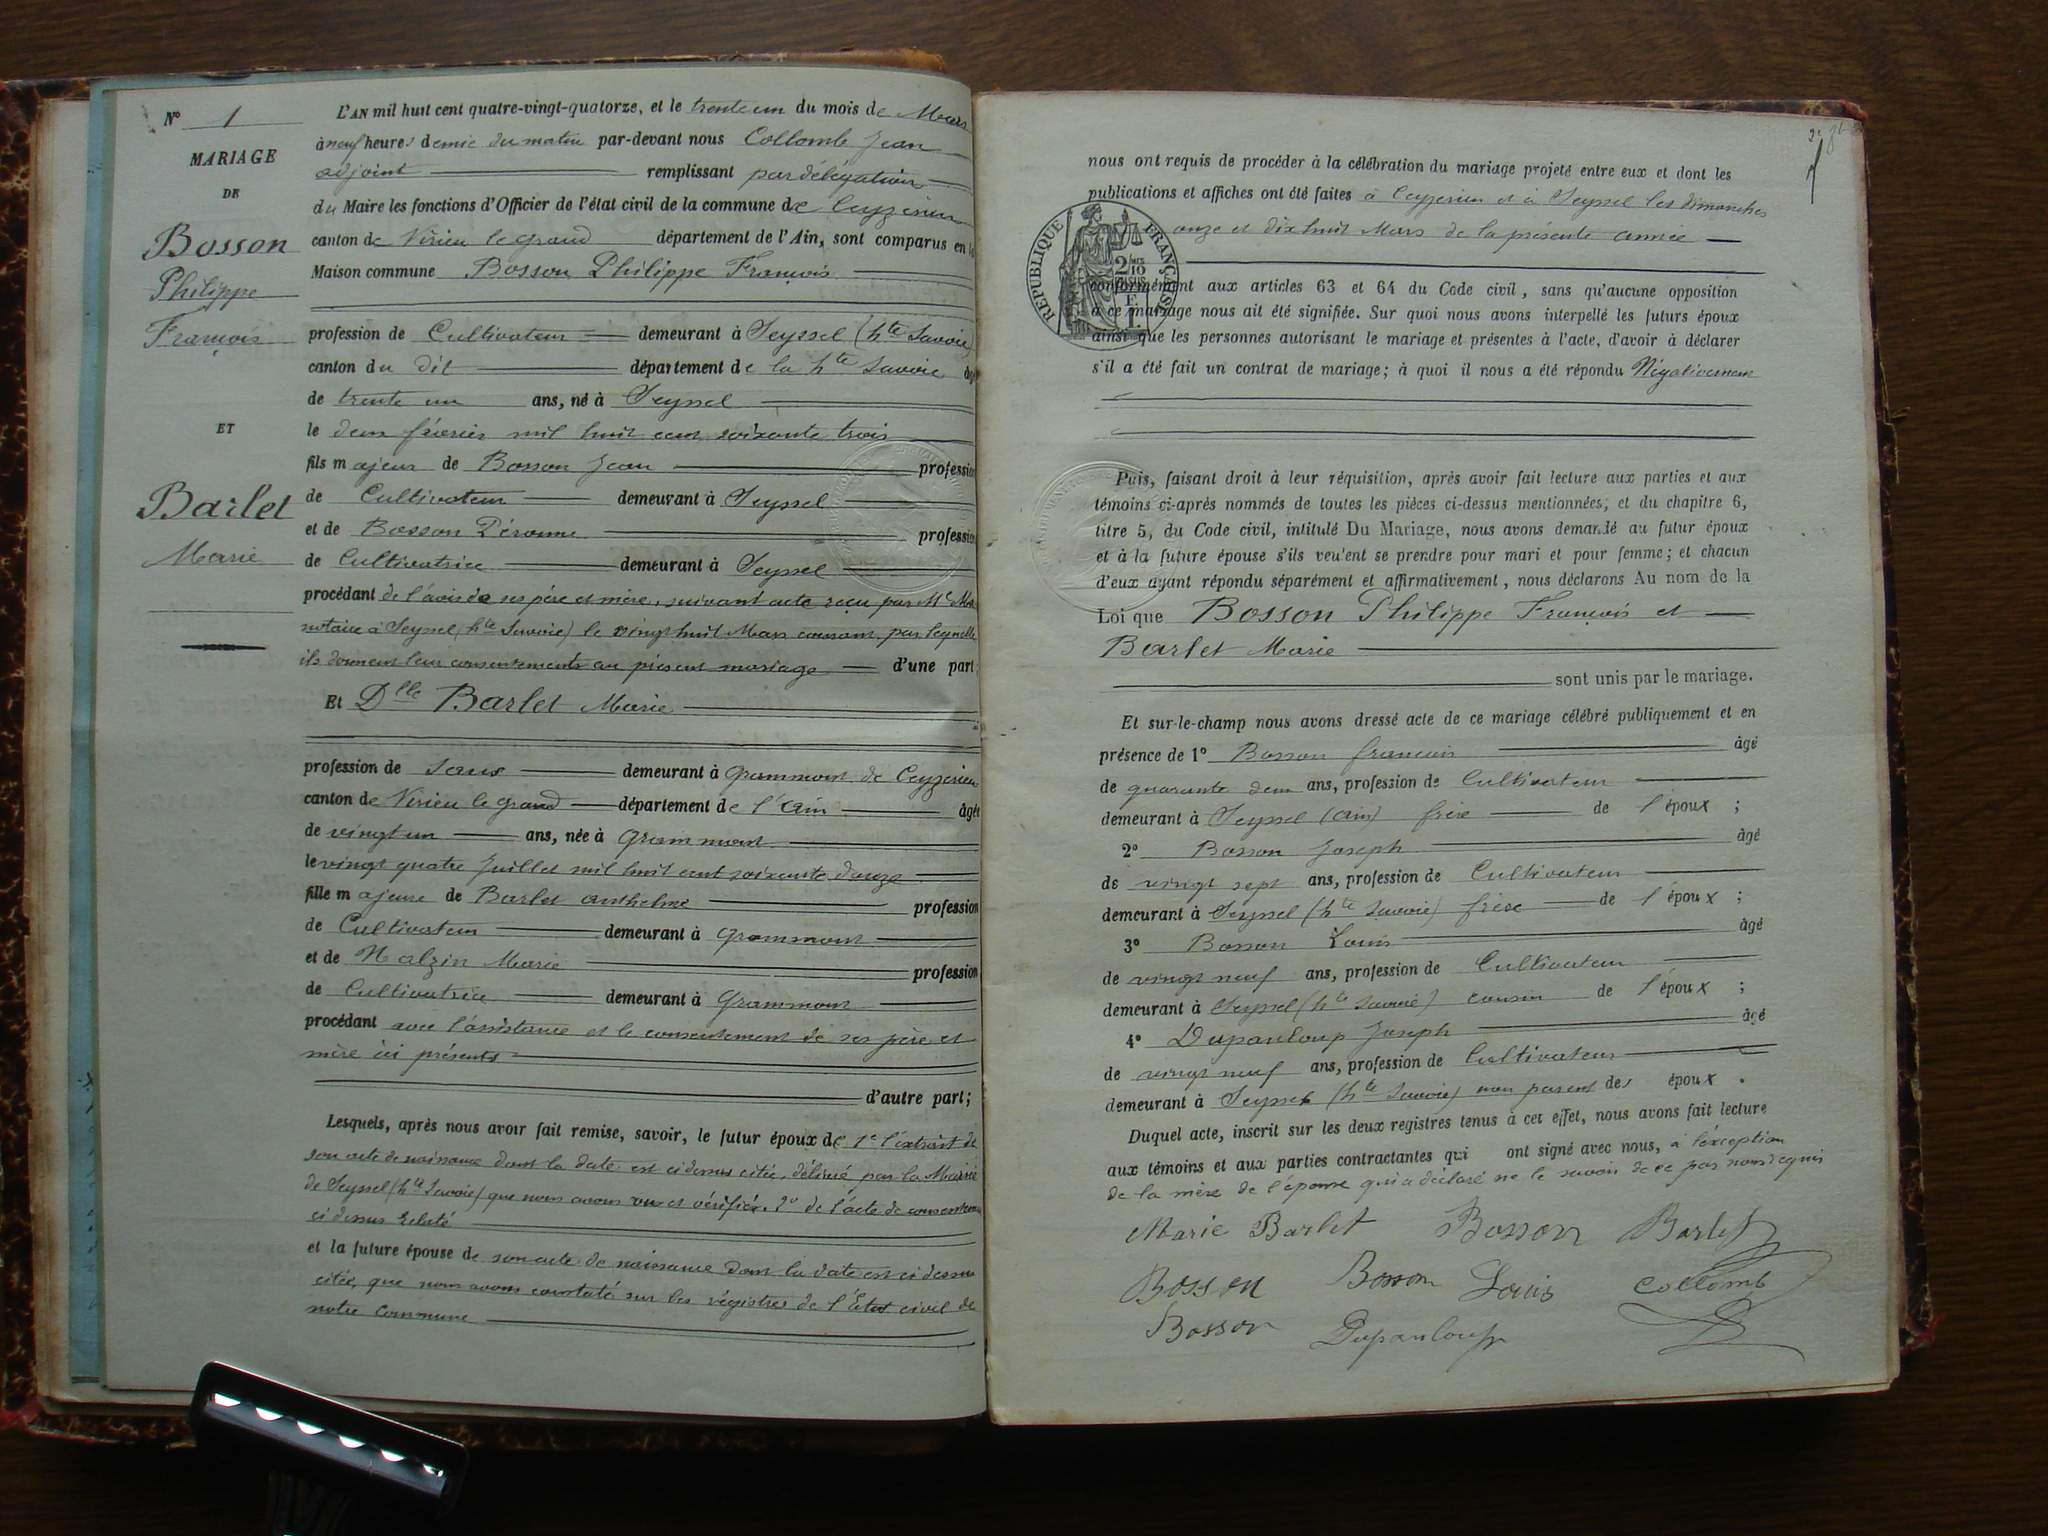 N° 1
MARIAGE
DE
Bosson
Philippe
François
ET
Barlet
Marie
L'AN mil huit cent quatre-vingt-quatorze, et le trente un du mois de Mars
à neuf heures demie du matin par-devant nous Collomb Jean
adjoint remplissant par délégation
du Maire les fonctions d'Officier de l'état civil de la commune de Ceyzerieu
canton de Virieu le grand département de l'Ain, sont comparus en la
Maison commune Bosson Philippe François
profession de Cultivateur demeurant à Seyssel (hte Savoie)
canton du dit département de la hte Savoie âgé
de trente un ans, né à Seyssel
le deux février mil huit cent soixante trois
fils majeur de Bosson Jean profession
de Cultivateur demeurant à Seyssel
et de Bosson Péronne profession
de Cultivatrice demeurant à Seyssel
procédant de l'avis de ses père et mère, suivant acte reçu par Me
notaire à Seyssel (hte Savoie) le vingt huit Mars courant, par lequel
ils donnent leur consentement au présent mariage d'une part;
Et Dlle Barlet Marie
profession de sans demeurant à Grammont de Ceyzerieu
canton de Virieu le grand département de l'Ain âgée
de vingt un ans, née à Grammont
le vingt quatre Juillet mil huit cent soixante douze
fille majeure de Barlet Anthelme profession
de Cultivateur demeurant à Grammont
et de Nalzin Marie profession
de Cultivatrice demeurant à Grammont
procédant avec l'assistance et le consentement de ses père et
mère ici présents
d'autre part;
Lesquels, après nous avoir fait remise, savoir, le futur époux de 1° l'extrait de
son acte de naissance dont la date est ci dessus citée, délivré par la Mairie
de Seyssel (hte Savoie) que nous avons vu et vérifié. 2° de l'acte de consentement
ci dessus relaté
et la future épouse de son acte de naissance dont la date est ci dessus
citée, que nous avons constaté sur les régistres de l'Etat civil de
notre commune
nous ont requis de procéder à la célébration du mariage projeté entre eux et dont les
publications et affiches ont été faites à Ceyzerieu et à Seyssel les dimanches
onze et dix huit Mars de la présente année
RÉPUBLIQUE FRANÇAISE
2/10
conformément aux articles 63 et 64 du Code civil, sans qu'aucune opposition
à ce mariage nous ait été signifiée. Sur quoi nous avons interpellé les futurs époux
ainsi que les personnes autorisant le mariage et présentes à l'acte, d'avoir à déclarer
s'il a été fait un contrat de mariage; à quoi il nous a été répondu Négativement
Puis, faisant droit à leur réquisition, après avoir fait lecture aux parties et aux
témoins ci-après nommés de toutes les pièces ci-dessus mentionnées, et du chapitre 6,
titre 5, du Code civil, intitulé Du Mariage, nous avons demandé au futur époux
et à la future épouse s'ils veulent se prendre pour mari et pour femme; et chacun
d'eux ayant répondu séparément et affirmativement, nous déclarons Au nom de la
Loi que Bosson Philippe François et
Barlet Marie
sont unis par le mariage.
Et sur-le-champ nous avons dressé acte de ce mariage célébré publiquement et en
présence de 1° Bosson François âgé
de quarante deux ans, profession de Cultivateur
demeurant à Seyssel (Ain) frère de l'époux ;
2° Bosson Joseph âgé
de vingt sept ans, profession de Cultivateur
demeurant à Seyssel (hte Savoie) frère de l'époux ;
3° Bosson Louis âgé
de vingt neuf ans, profession de Cultivateur
demeurant à Seyssel (hte Savoie) cousin de l'époux ;
4° Dupanloup Joseph âgé
de vingt neuf ans, profession de Cultivateur
demeurant à Seyssel (hte Savoie) non parent des époux .
Duquel acte, inscrit sur les deux registres tenus à cet effet, nous avons fait lecture
aux témoins et aux parties contractantes qui ont signé avec nous, à l'exception
de la mère de l'épouse qui a déclaré ne le savoir de ce par nous requis
Marie Barlet Bosson Barlet
Bosson Bosson Louis Collomb
Bosson Dupanloup